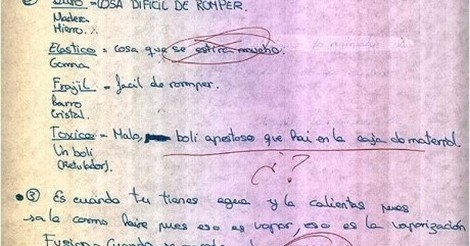 ② Duro = COSA DIFICIL DE ROMPER.
Madera
Hierro.
Elastico = cosa que se estira mucho.
Goma
Frajil = facil de rormper.
Barro
Cristal.
Toxico = Malo, boli apestoso que hai en la caja do materrial
Un boli
(Retulador).
¿?
③ Es cuando tu tienes agua y la calientas pues
sala como haire pues eso es vapor, eso es la vaporización
Fusion = Cuando